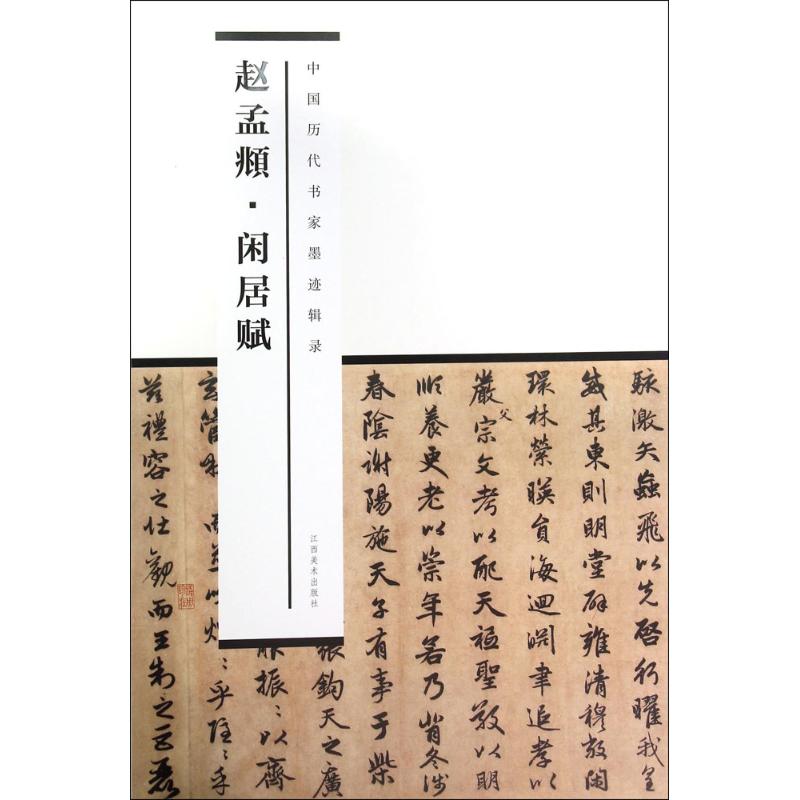 赵孟頫·闲居赋
中国历代书家墨迹辑录
江西美术出版社
駭激矢蝱飛以先啓行曜我皇
威其東則明堂辟雍清穆敞閑
環林縈暎員海迴淵聿追孝以
嚴父宗文考以配天祗聖敬以明
順養更老以崇年若乃背冬涉
春陰謝陽施天子有事于柴
張鈞天之廣
服振：以齊
玄管 而 煌：乎隱：乎
茲禮容之壯觀而王制之巨麗